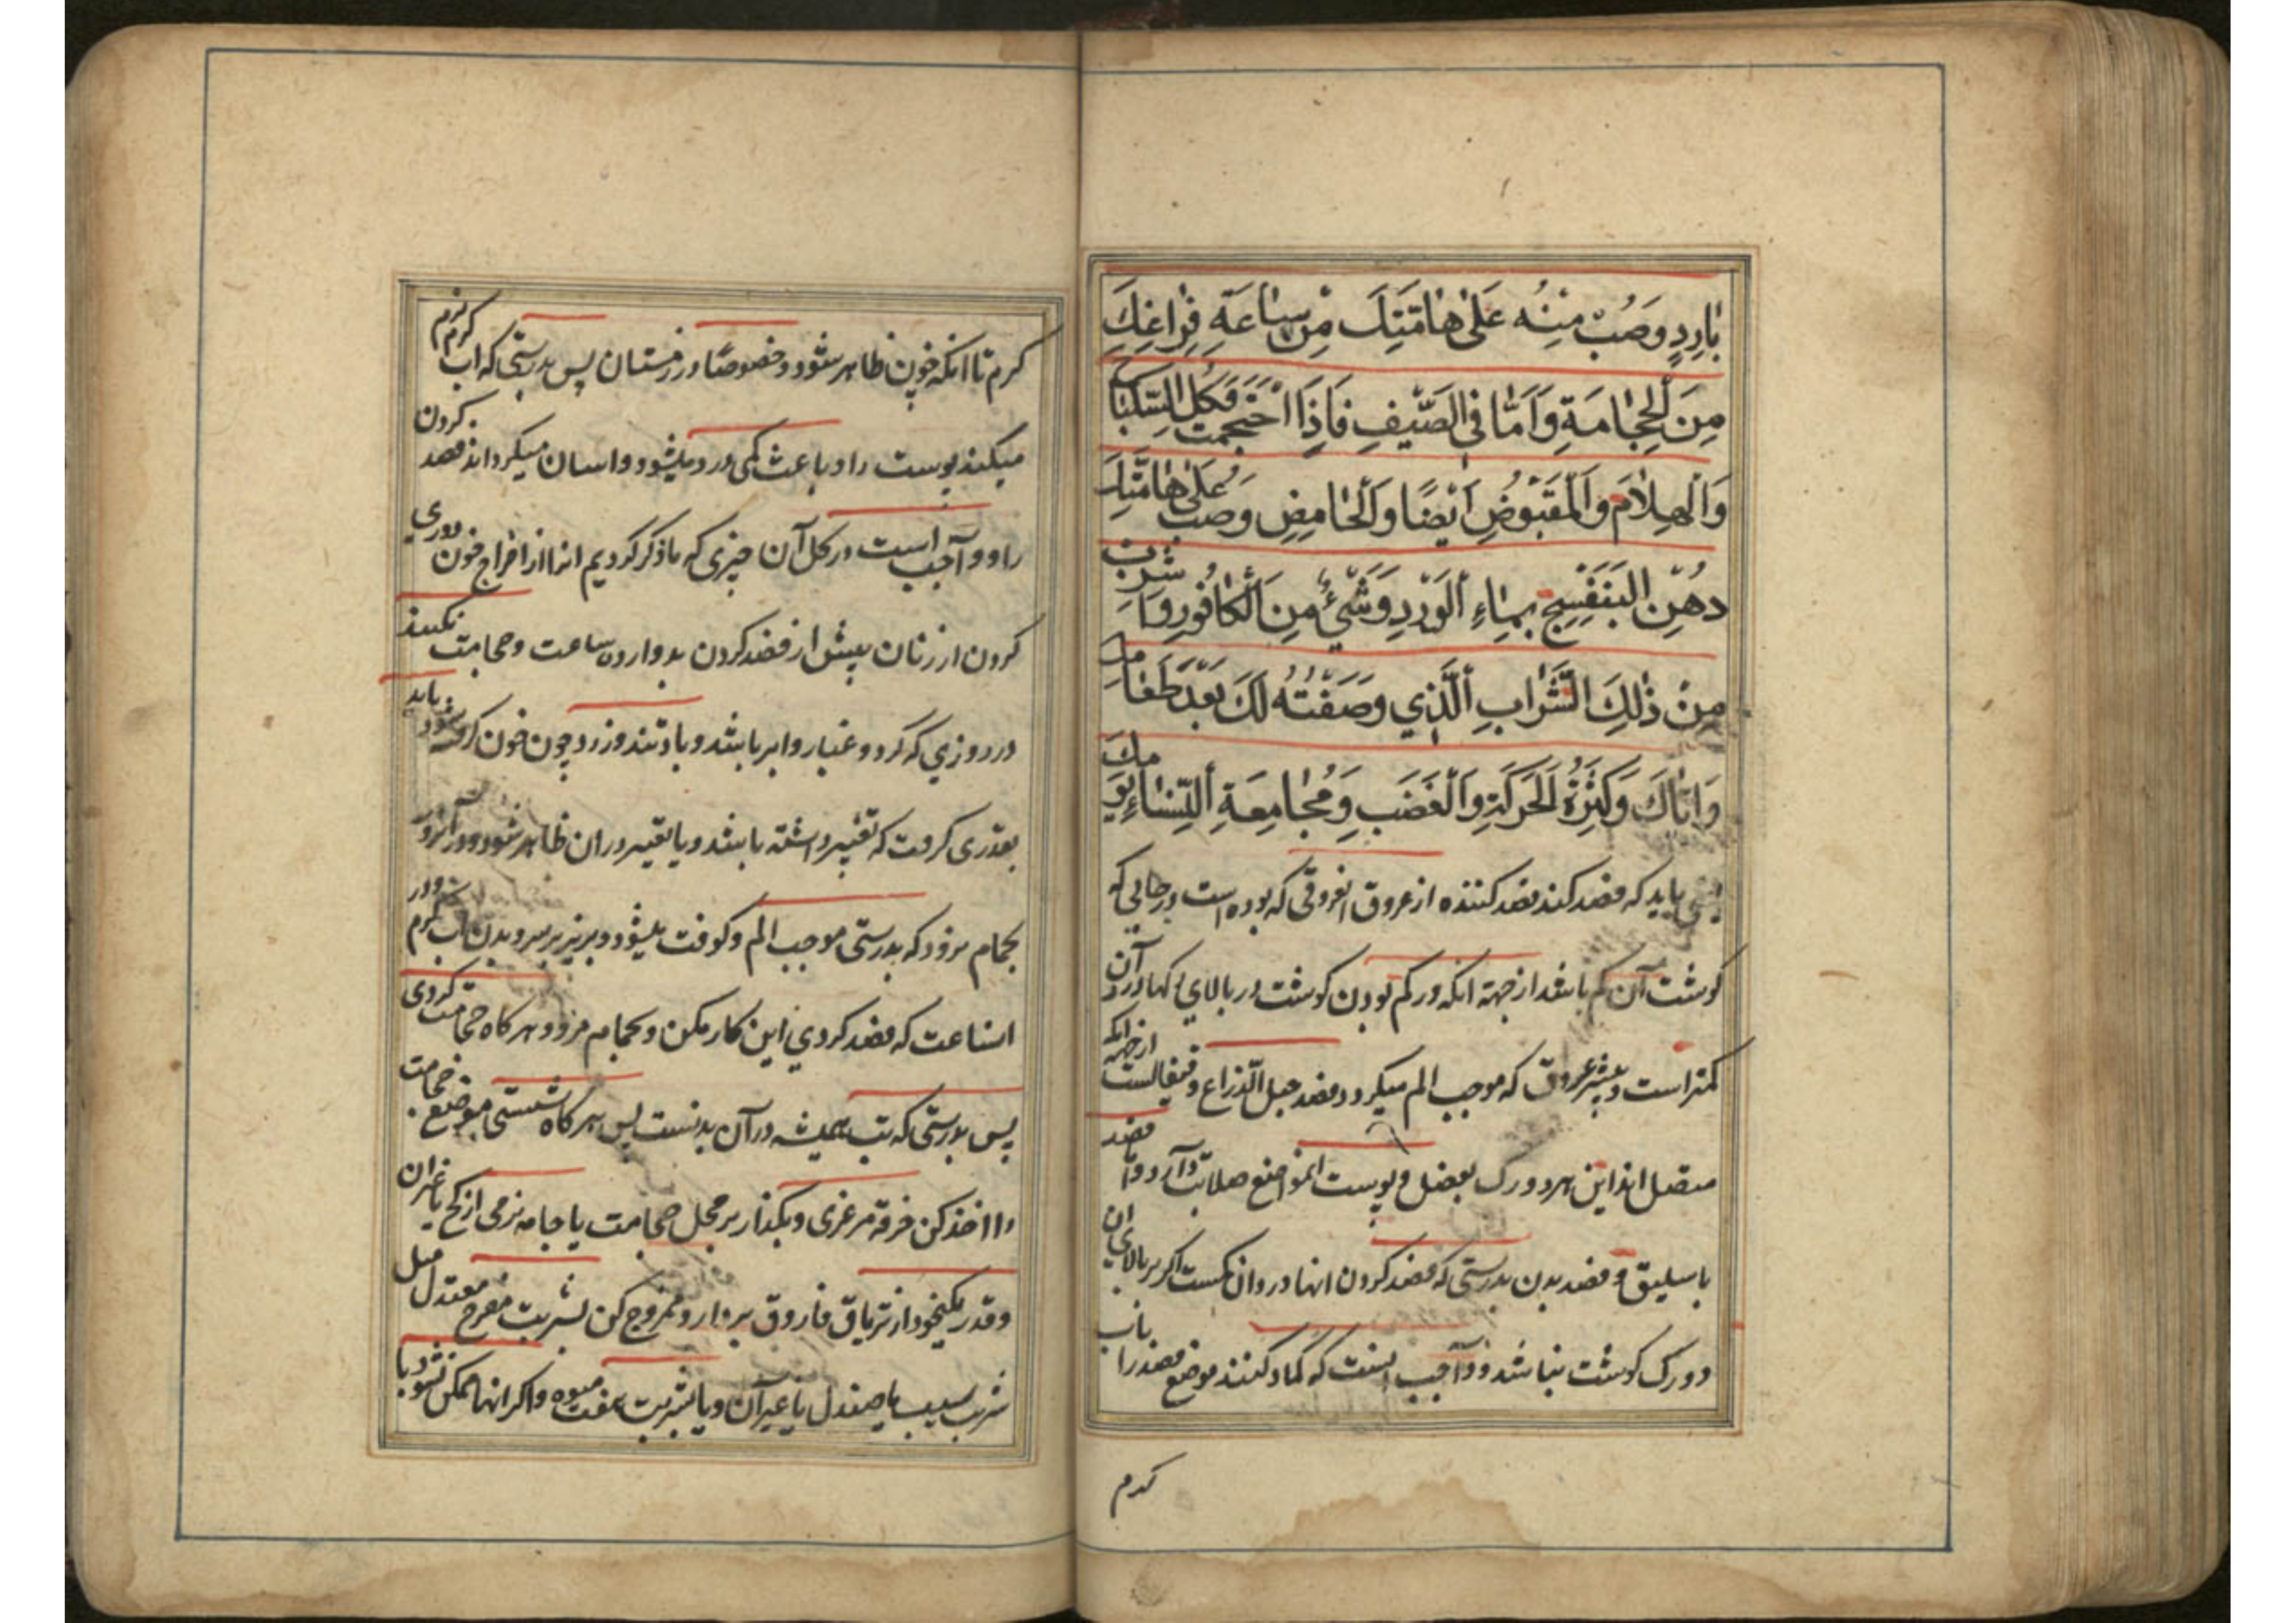 بٰارِدٍ وَصُبَّ مِنْهُ عَلىٰ هٰامَتِكَ مِنْ سٰاعَةِ فِرٰاغِكَ
مِنَ الْحِجٰامَةِ وَاَمّٰا فِي الصَّيْفِ فَاِذَا احْتَجَمْتَ فَكُلِ السِّكْبٰاجَ
وَالْهِلٰامَ وَالْمَقْبُوضِ اَيْضًا وَالْحٰامِضِ وَصُبَّ عَلىٰ هٰامَتِكَ
دُهْنِ الْبَنَفْسَجِ بِمٰاءِ الْوَرْدِ وَشَيْءٌ مِنَ الْكٰافُورِ وَاشْرَبْ
مِنْ ذٰلِكَ الشَّرٰابِ الَّذِي وَصَفْتُهُ لَكَ بَعْدَ طَعٰامِكَ
وَاِيّٰاكَ وَكَثْرَةُ الْحَرَكَةِ وَالْغَضَبِ وَمُجٰامِعَةِ النِّسٰاءِ يَوْمَكَ
باید که فصد کند فصد کننده از عروق انعروقی که بوده است در حالی که
کوشت آن کم باشد از جهة انکه در کم بودن کوشت در بالای رکها درد آن
کمتر است و بیشتر عروق که موجب الم میکردد فصد حبل الذراع و قیفالست از جهة انکه
متصل اند این هر دو رک بعضل و پوست انموضع صلابت دارد و اما فصد
باسلیق و فصد بدن بدرستی که فصد کردن انها در وان کمست اکر بر بالای ان
دو رک کوشت نباشد و واجب اینست که کماد کنند موضع فصد را باب
کرم
کرم تا انکه خون ظاهر شود و خصوصًا در زمستان پس بدرستی که اب کرم نرم
میکند پوست را و باعث کمی درد میشود و اسان میکرداند فصد کردن
را و واجب است در کل آن چیزی که ما ذکر کردیم انرا از اخراج خون دوری
کردن از زنان پیش از فصد کردن بدوازده ساعت و حجامت نکنند
در روزی که کرد و غبار و ابر باشد و باد تند وزد و چون خون کرفته شود باید
بقدری کرفت که تغییر داشته باشد و یا تغییر دران ظاهر شود و در انروز
بحمام مرو که بدرستی موجب الم و کوفت میشود و بریز بر سر و بدن اب کرم و در
انساعت که فصد کردی این کار مکن و بحمام مرو و هر کاه حجامت کردی
پس بدرستی که تب همیشه در آن بدنست پس هر کاه شستی موضع حجامت
را اخذ کن خرقه مرغزی و بکذار بر محل حجامت یا جامه نرمی از کج یا غیر ان
و قدر یکنخود از تریاق فاروق بردار و ممزوج کن بشربت مفرح معتدل میل
شربت سیب یا صندل یا غیر آن و یا بشربت میوه و اکر انها ممکن نشود یا